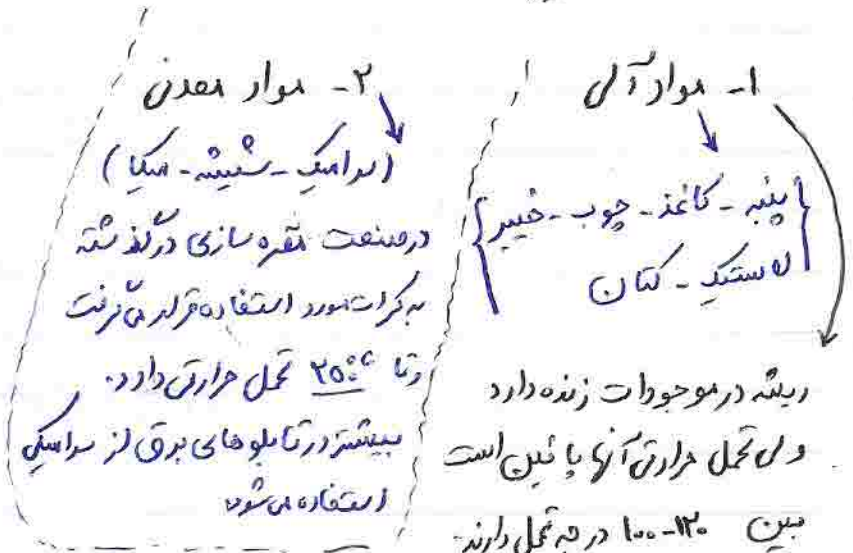 ۱- مواد آلی
{ پنبه - کاغذ - چوب - فیبر
لاستیک - کتان }
ریشه در موجودات زنده دارد
ولی تحمل حرارتی آنها پائین است
بین ۱۰۰-۱۲۰ درجه تحمل دارند.
۲- مواد معدنی
(سرامیک - شیشه - میکا)
در صنعت مقره سازی در گذشته
به کرات مورد استفاده قرار می گرفت
و تا ۲۵۰°c تحمل حرارتی دارد.
بیشتر در تابلو های برق از سرامیک
استفاده می شود